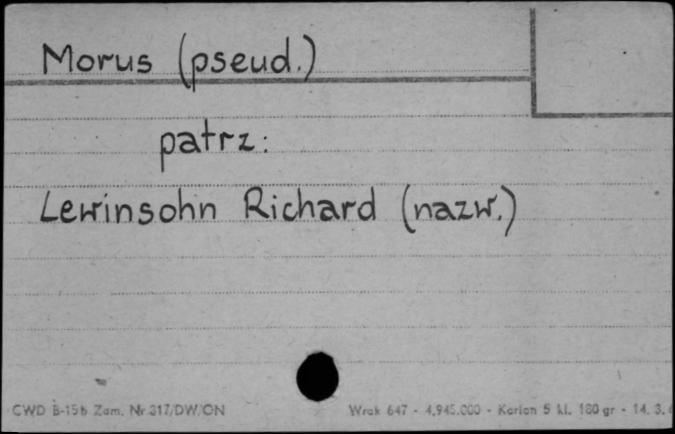 Morus (pseud.)
patrz:
Lewinsohn Richard (nazw.)
CWD B-15b Zam. Nr 317/DW/ON
Wrak 647 - 4.945.000 - Karton 5 kl. 180 gr - 14. 3.